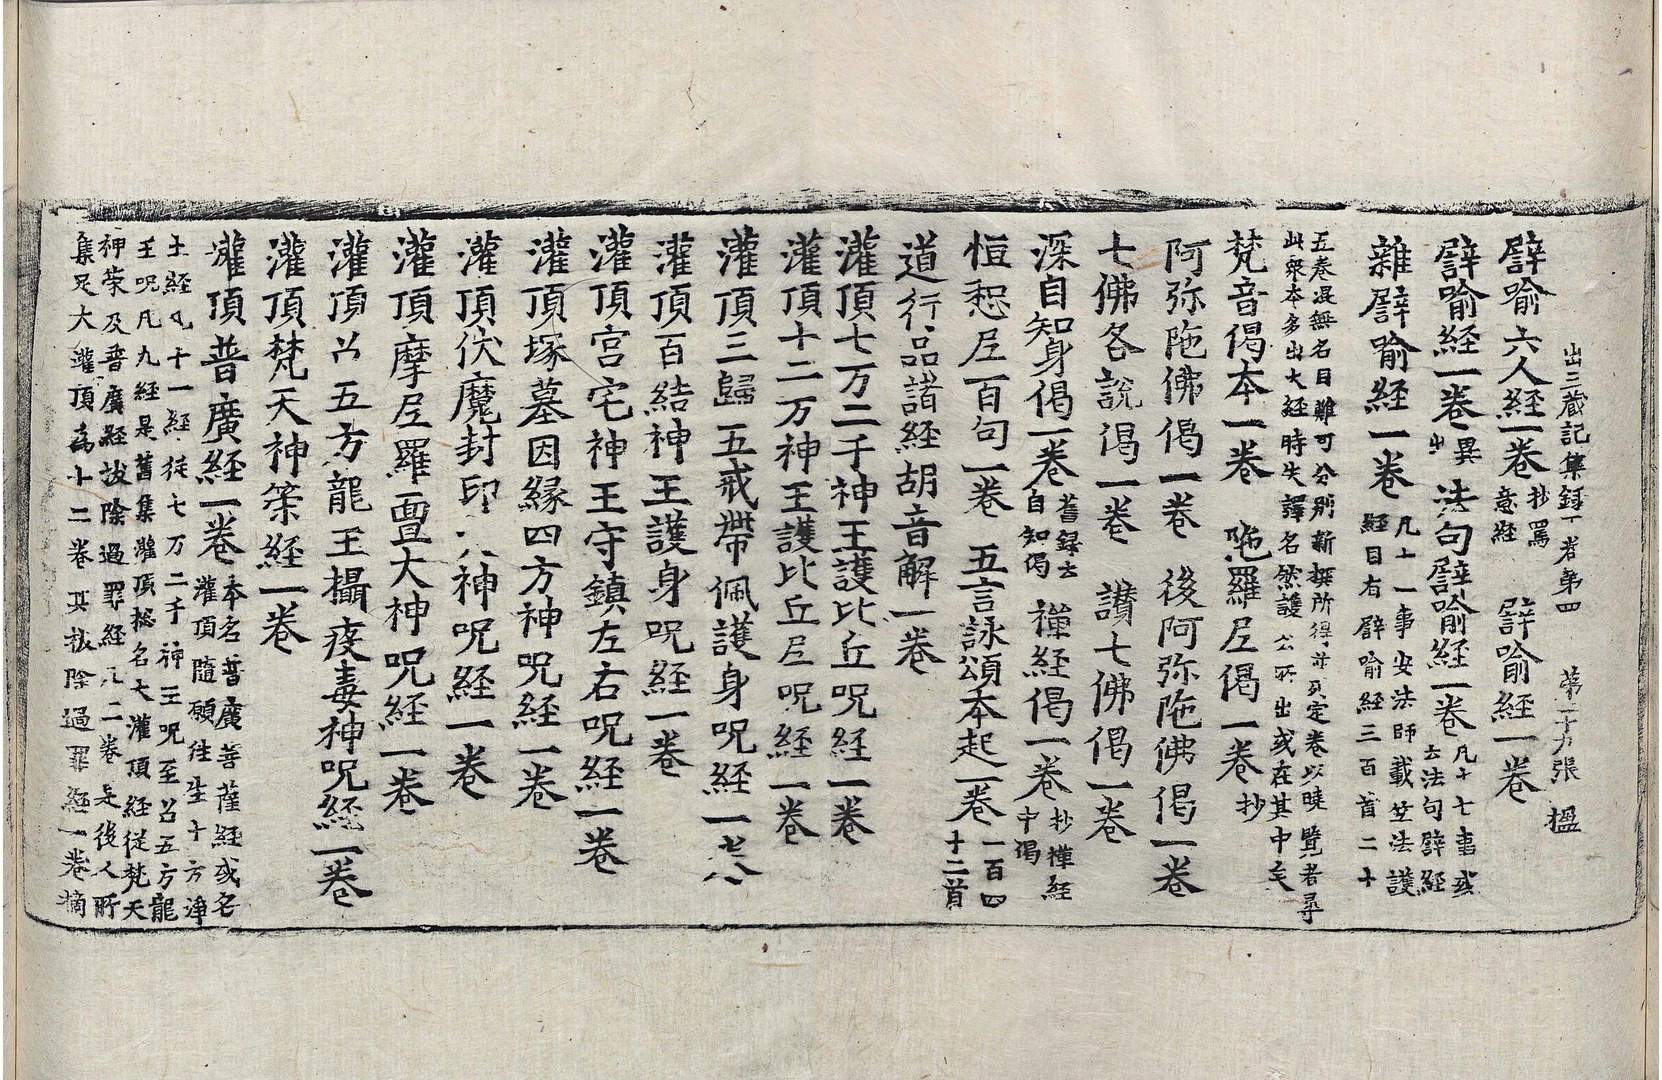 出三藏記集錄下卷第四　第二十九張　楹
譬喻六人經一卷 抄罵意經　譬喻經一卷
譬喻經一卷 異出　法句譬喻經一卷 凡十七事或云法句譬經
雜譬喻經一卷 凡十一事安法師載竺法護經目有譬喻經三百首二十
五卷混無名目難可分別新撰所得並列定卷以曉覽者尋
此衆本多出大經時失譯名然護公所出或在其中矣
梵音偈本一卷　陁羅尼偈一卷 抄
阿弥陁佛偈一卷　後阿弥陁佛偈一卷
七佛各說偈一卷　讃七佛偈一卷
深自知身偈一卷 舊録云自知偈　禪經偈一卷 抄禪經中偈
恒惒尼百句一卷　五言詠頌本起一卷 一百四十二首
道行品諸經胡音解一卷
灌頂七万二千神王護比丘呪經一卷
灌頂十二万神王護比丘尼呪經一卷
灌頂三歸五戒帶佩護身呪經一卷
灌頂百結神王護身呪經一卷
灌頂宮宅神王守鎮左右呪經一卷
灌頂塚墓因緣四方神呪經一卷
灌頂伏魔封印大神呪經一卷
灌頂摩尼羅亶大神呪經一卷
灌頂召五方龍王攝疫毒神呪經一卷
灌頂梵天神策經一卷
灌頂普廣經一卷 本名普廣菩薩經或名灌頂隨願往生十方淨
土經凡十一經從七万二千神王呪至召五方龍
王呪凡九經是舊集灌頂捴名大灌頂經從梵天
神策及普廣經拔除過罪經凡二卷是後人所
集足大灌頂為十二卷其拔除過罪經一卷摘